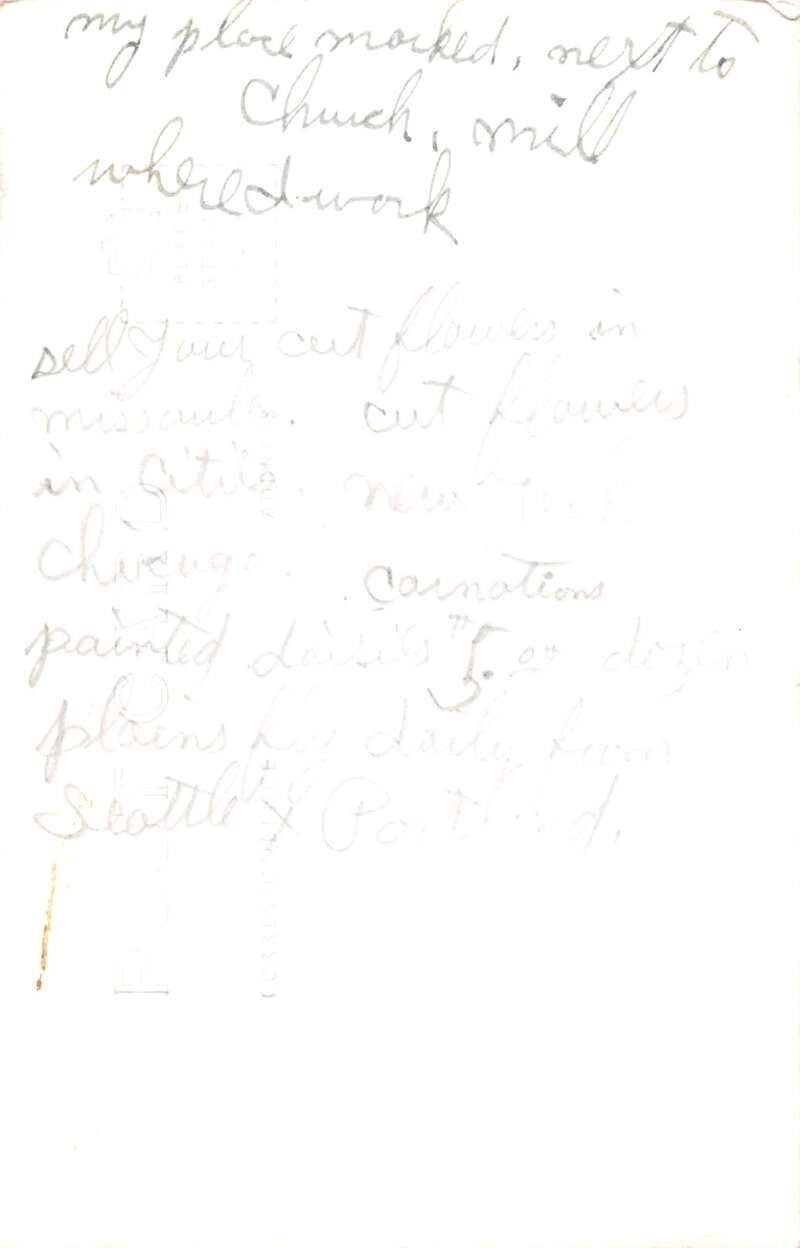 my place marked, next to
Church, mill
where I work
sell your cut flowers in
missoula. cut flowers
in Cities. New York
Chicago. Carnations
painted daisies 5.00 dozen
plains Hy daily from
Seattle & Portland.
PLACE
CORRESPONDENCE